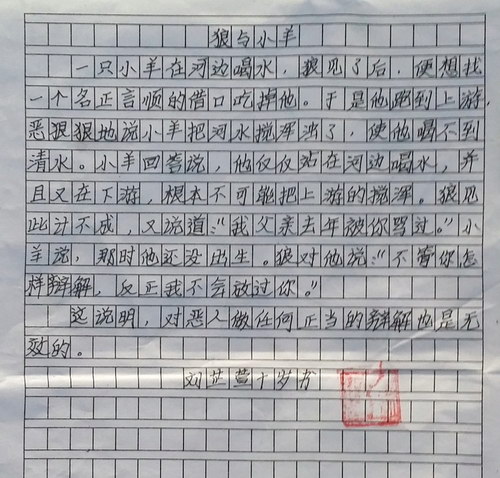 狼与小羊
一只小羊在河边喝水，狼见了后，便想找
一个名正言顺的借口吃掉他。于是他跑到上游，
恶狠狠地说小羊把河水搅浑浊了，使他喝不到
清水。小羊回答说，他仅仅站在河边喝水，并
且又在下游，根本不可能把上游的搅浑。狼见
此计不成，又说道：“我父亲去年被你骂过。”小
羊说，那时他还没出生。狼对他说：“不管你怎
样辩解，反正我不会放过你。”
这说明，对恶人做任何正当的辩解也是无
效的。
刘芷萱十岁书